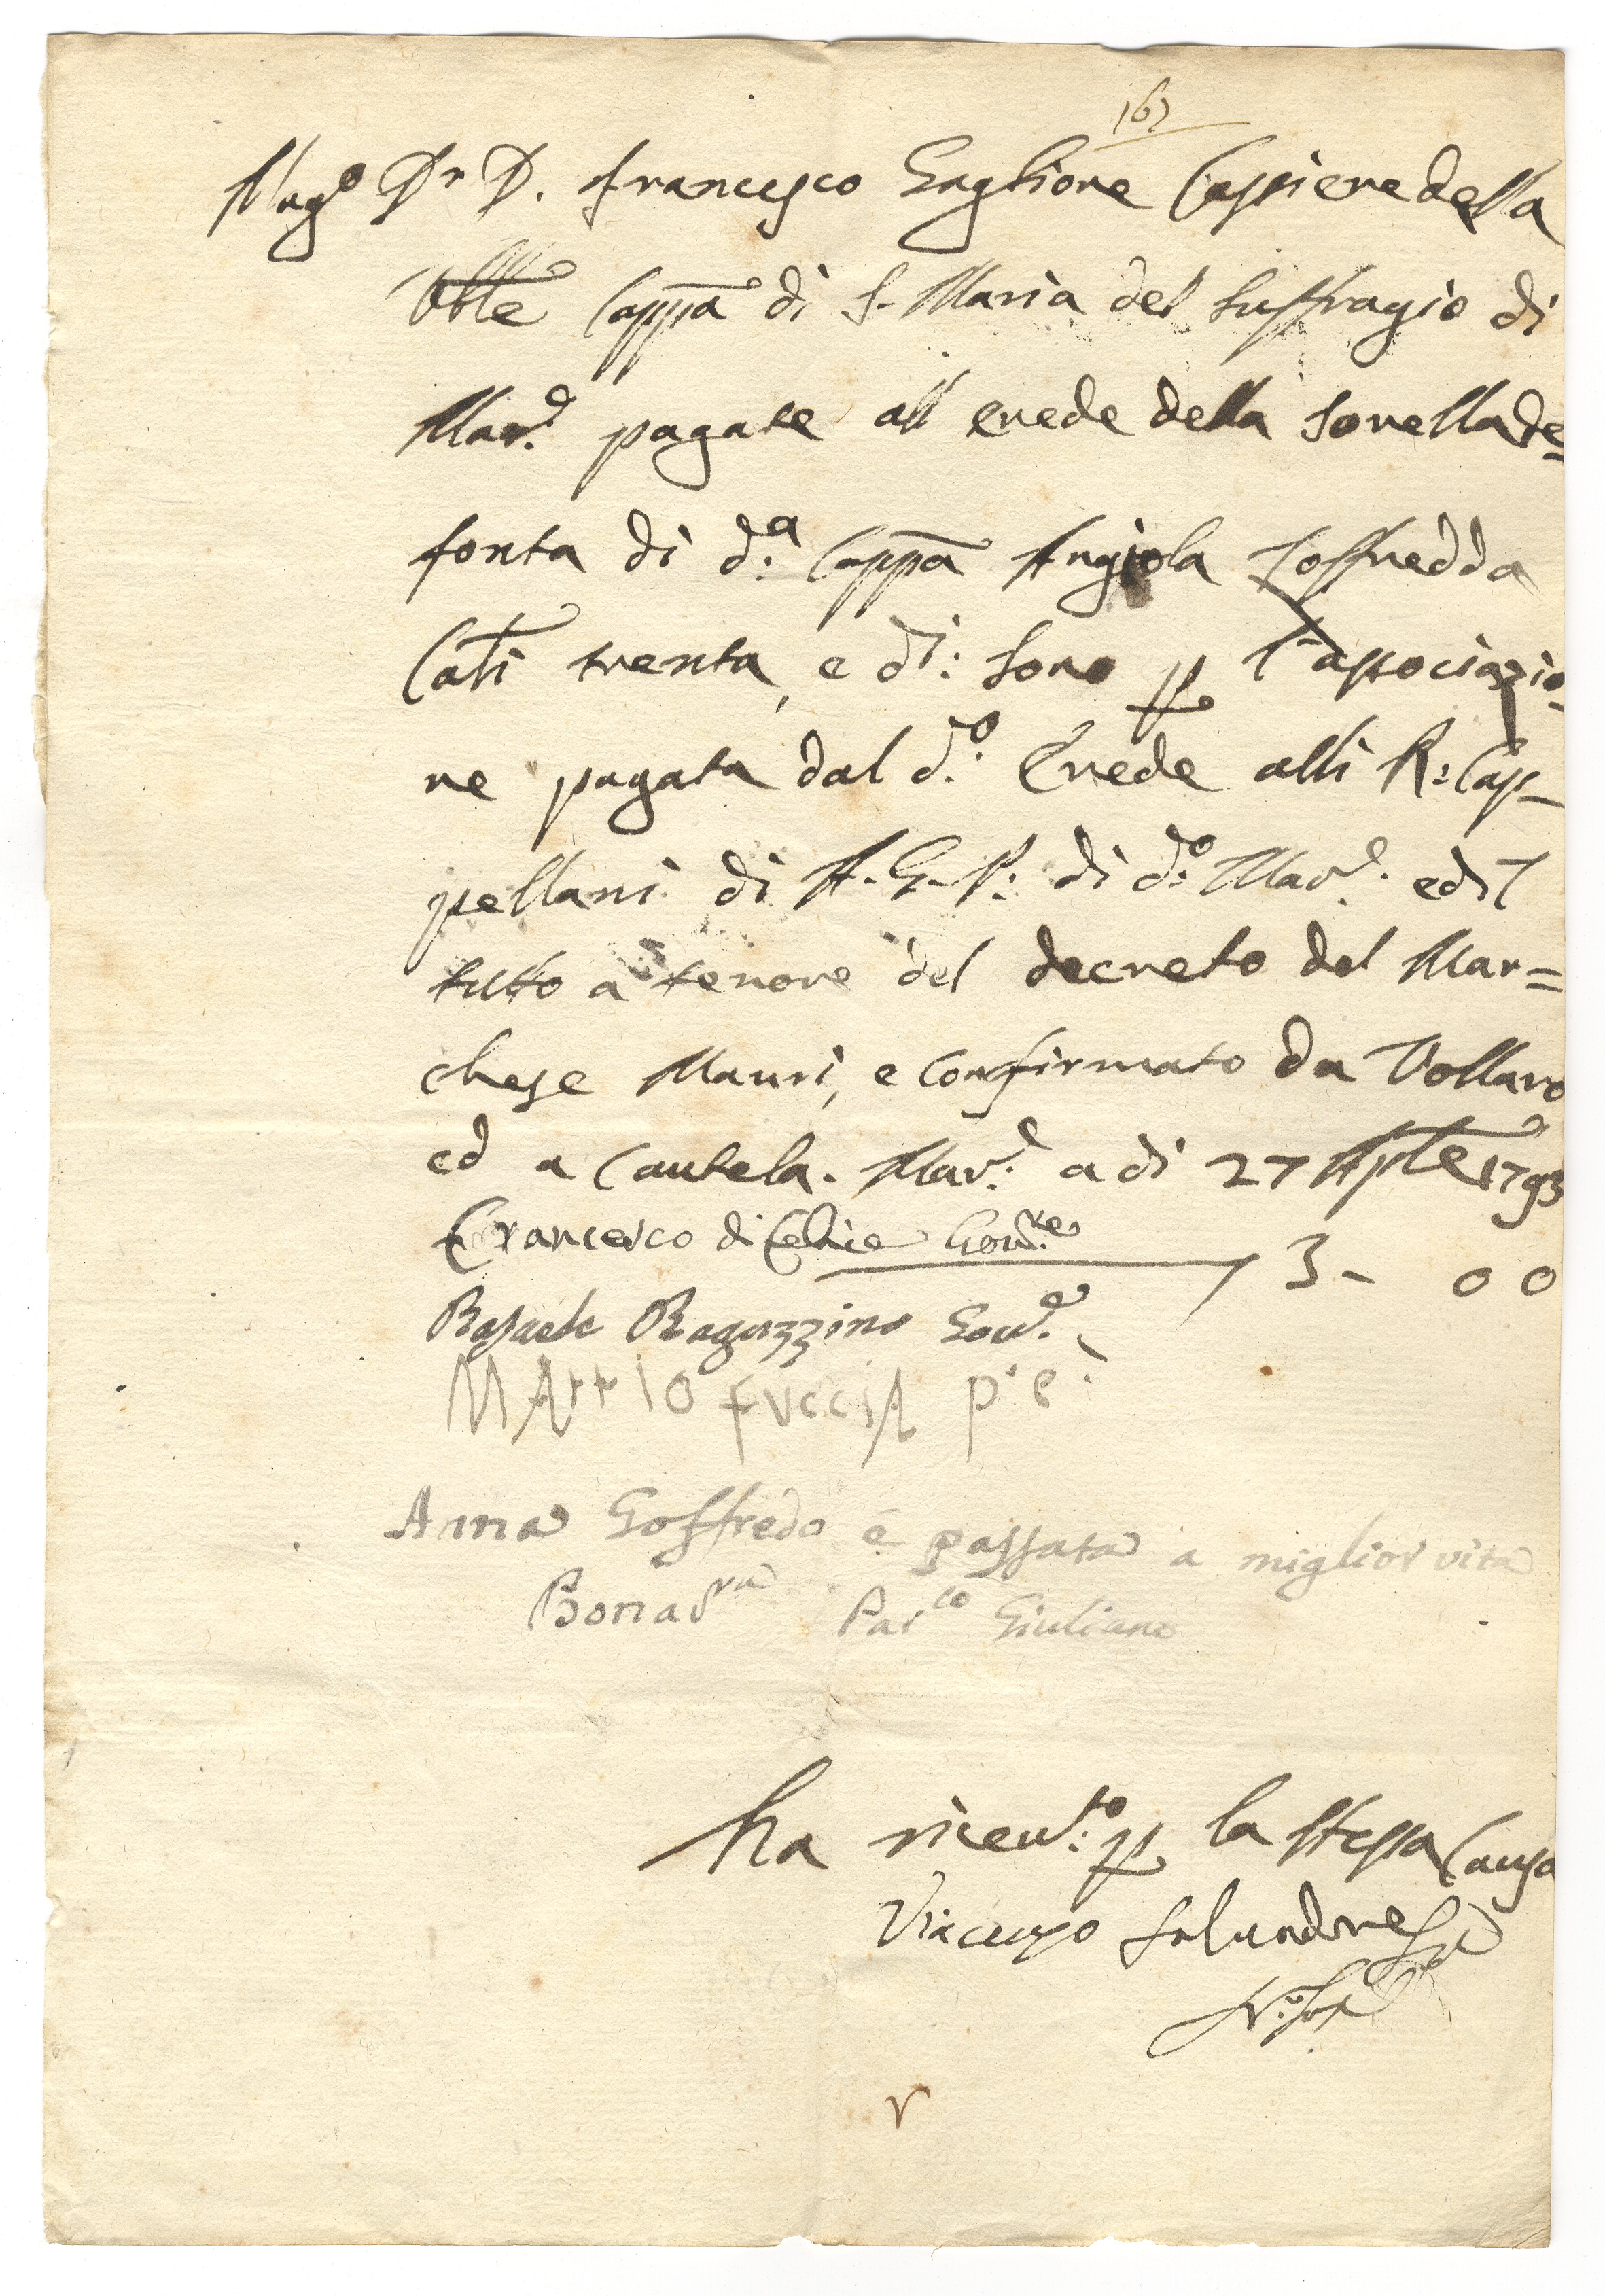 167
Mag.co Dr D. Francesco Gaglione Cassiere della
Ven.le Capp.a di S. Maria del Suffragio di
Mar.d pagate all erede della sorella de=
fonta di d.a Capp.a Angiola Goffredda
Carl.i trenta, e d.i: sono p l'associazio=
ne pagata dal d.o: Erede alli R: Cap=
pellani di A. G. P: di d.o: Mar.d ed il
tutto a tenore del decreto del Mar=
chese Mauri, e confirmato da Vollaro
ed a cautela. Mar.d: a di 27 Aple 1793
Francesco di Felice Gov.re
3 - 00
Rafaele Ragozzino Gov.e
MAttIO fVCCIA p.e
Anna Goffredo è passata a miglior vita
Bona.ra Par.co Giuliano
ha ricev.to: p la stessa causa
Vincenzo Salandra